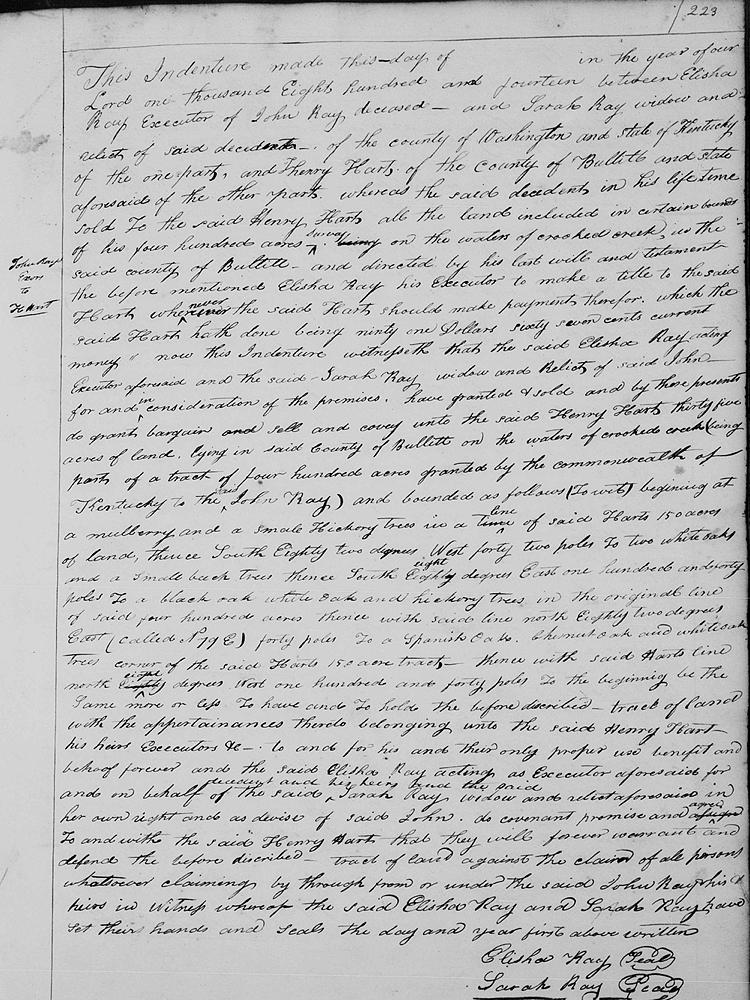 223
This Indenture made this—day of in the year of our
Lord one thousand Eight hundred and fourteen between Elisha
Ray Executor of John Ray deceased — and Sarah Ray widow and
relict of said decedents —. of the county of Washington and state of Kentucky
of the one part, and Henry Hart. of the County of Bullitt and state
aforesaid of the other part. whereas the said decedent in his life time
sold To the said Henry Hart all the land included in certain bounds
of his four hundred acres survey being on the waters of crooked creek, in the
said county of Bullitt — and directed by his last will and testament
the before mentioned Elisha Ray his Executor to make a title to the said
John Rays
Exors
to
Hart
Hart whenever the said Hart should make payment therefor. which the
said Hart hath done being ninty one Dollars sixty seven cents current
money " now this Indenture witnesseth that the said Elisha Ray acting
Executor aforesaid and the said Sarah Ray widow and Relict of said John —
for and in consideration of the premises. have granted & sold and by those presents
do grant bargain and sell and covey unto the said Henry Hart thirty five
acres of land. lying in said County of Bullitt on the waters of crooked creek (being
part of a tract of four hundred acres granted by the commonwealth of
Kentucky to the said John Ray) and bounded as follows (To wit) begining at
a mulberry and a small Hickory trees in a line of said Harts 150 acres
of land, thence South Eighty two degrees West forty two poles To two white oaks
and a small buck trees thence South eight degrees East one hundred and forty
poles To a black oak white oak and hickory trees in the original line
of said four hundred acres thence with said line north Eighty two degrees
East (called N 79 E) forty poles To a Spanish Oak. Chesnut oak and white oak
trees corner of the said Harts 150 acre tract — thence with said Harts line
north eight degrees West one hundred and forty poles To the begining be the
Same more or less To have and To hold the before discribed — tract of land
with the appertainances thereto belonging unto the said Henry Hart —
his heirs Executors &c —. to and for his and their only proper use benefit and
behoof forever and the said Elisha Ray acting as Executor aforesaid for
and on behalf of the said decedent and his heirs and the said Sarah Ray widow and relict aforesaid in
her own right and as devise of said John. do covenant promise and agree
To and with the said Henry Hart that they will forever warrant and
defend the before discribed — tract of land against the claim of all persons
whatsoever claiming by through from or under the said John Ray his &
heirs in Witness whereof the said Elisha Ray and Sarah Ray have
set their hands and seals the day and year first above written
Elisha Ray Seal
Sarah Ray Seal